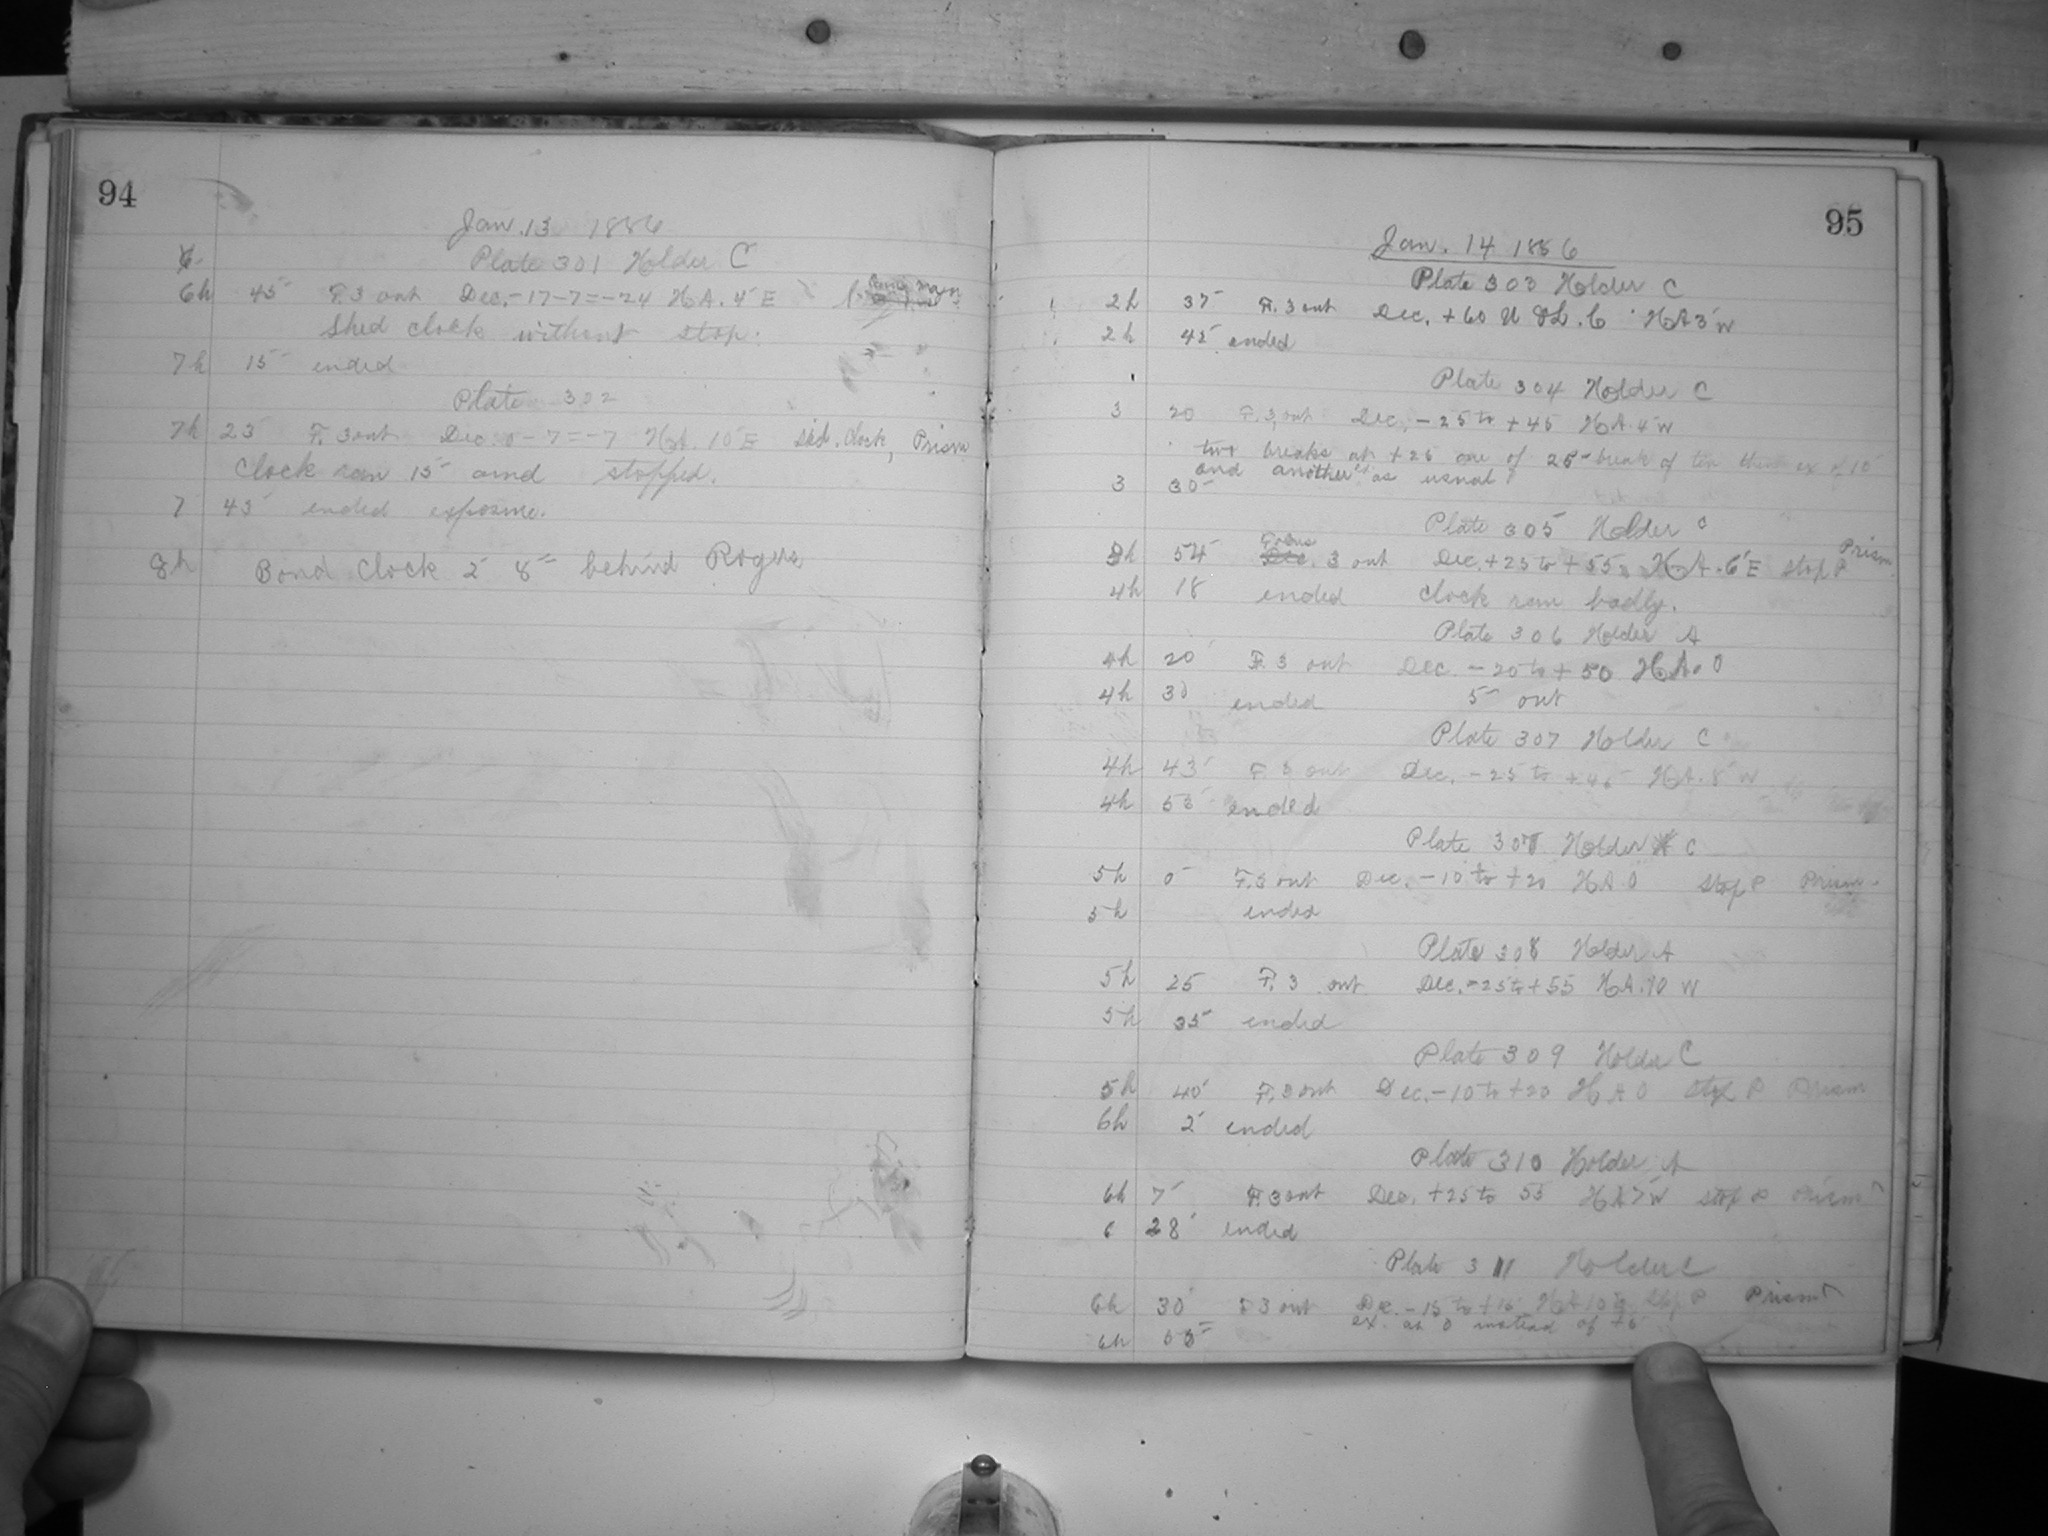 94
Jan. 13 1886
Plate 301 Holder C
6h 45 F. 3 out Dec. -17-7=-24 H A. 4 E
Shed clock without stop.
7h 15 ended
Plate 302
7h 23 F. 3 out Dec. 0-7=-7 H A. 10 E Sid. Clock, Prism
Clock ran 15 and stopped.
7 43 ended exposure.
8h Bond Clock 2 8 behind Rogers
95
Jan. 14 1886
Plate 303 Holder C
2h 37 F. 3 out Dec. +60 U & L. C H A 3 W
2h 45 ended
Plate 304 Holder C
3 20 F. 3 out Dec. -25 to +45 H A. 4 W
two breaks at +25 one of 25 break of ten then ex of 10
and another as usual
3 30
Plate 305 Holder C
3h 54 Focus 3 out Dec. +25 to +55 H A. 6 E stop P Prism
4h 18 ended Clock ran badly.
Plate 306 Holder A
4h 20 F. 3 out Dec. -20 to +50 H A. 0
4h 30 ended 5 out
Plate 307 Holder C
4h 43 F. 3 out Dec. -25 to +45 H A. 8 W
4h 53 ended
Plate 307 Holder C
5h 0 F. 3 out Dec. -10 to +20 H A 0 Stop P Prism
5h ended
Plate 308 Holder A
5h 25 F. 3 out Dec. -25 to +55 H A. 10 W
5h 35 ended
Plate 309 Holder C
5h 40 F. 3 out Dec. -10 to +20 H A 0 stop P Prism
6h 2 ended
Plate 310 Holder A
6h 7 F. 3 out Dec. +25 to 55 H A 7 W stop P Prism
6 28 ended
Plate 311 Holder C
6h 30 F 3 out Dec. -15 to +15 H A 10 Stop P Prism
ex. at 0 instead of +5
6h